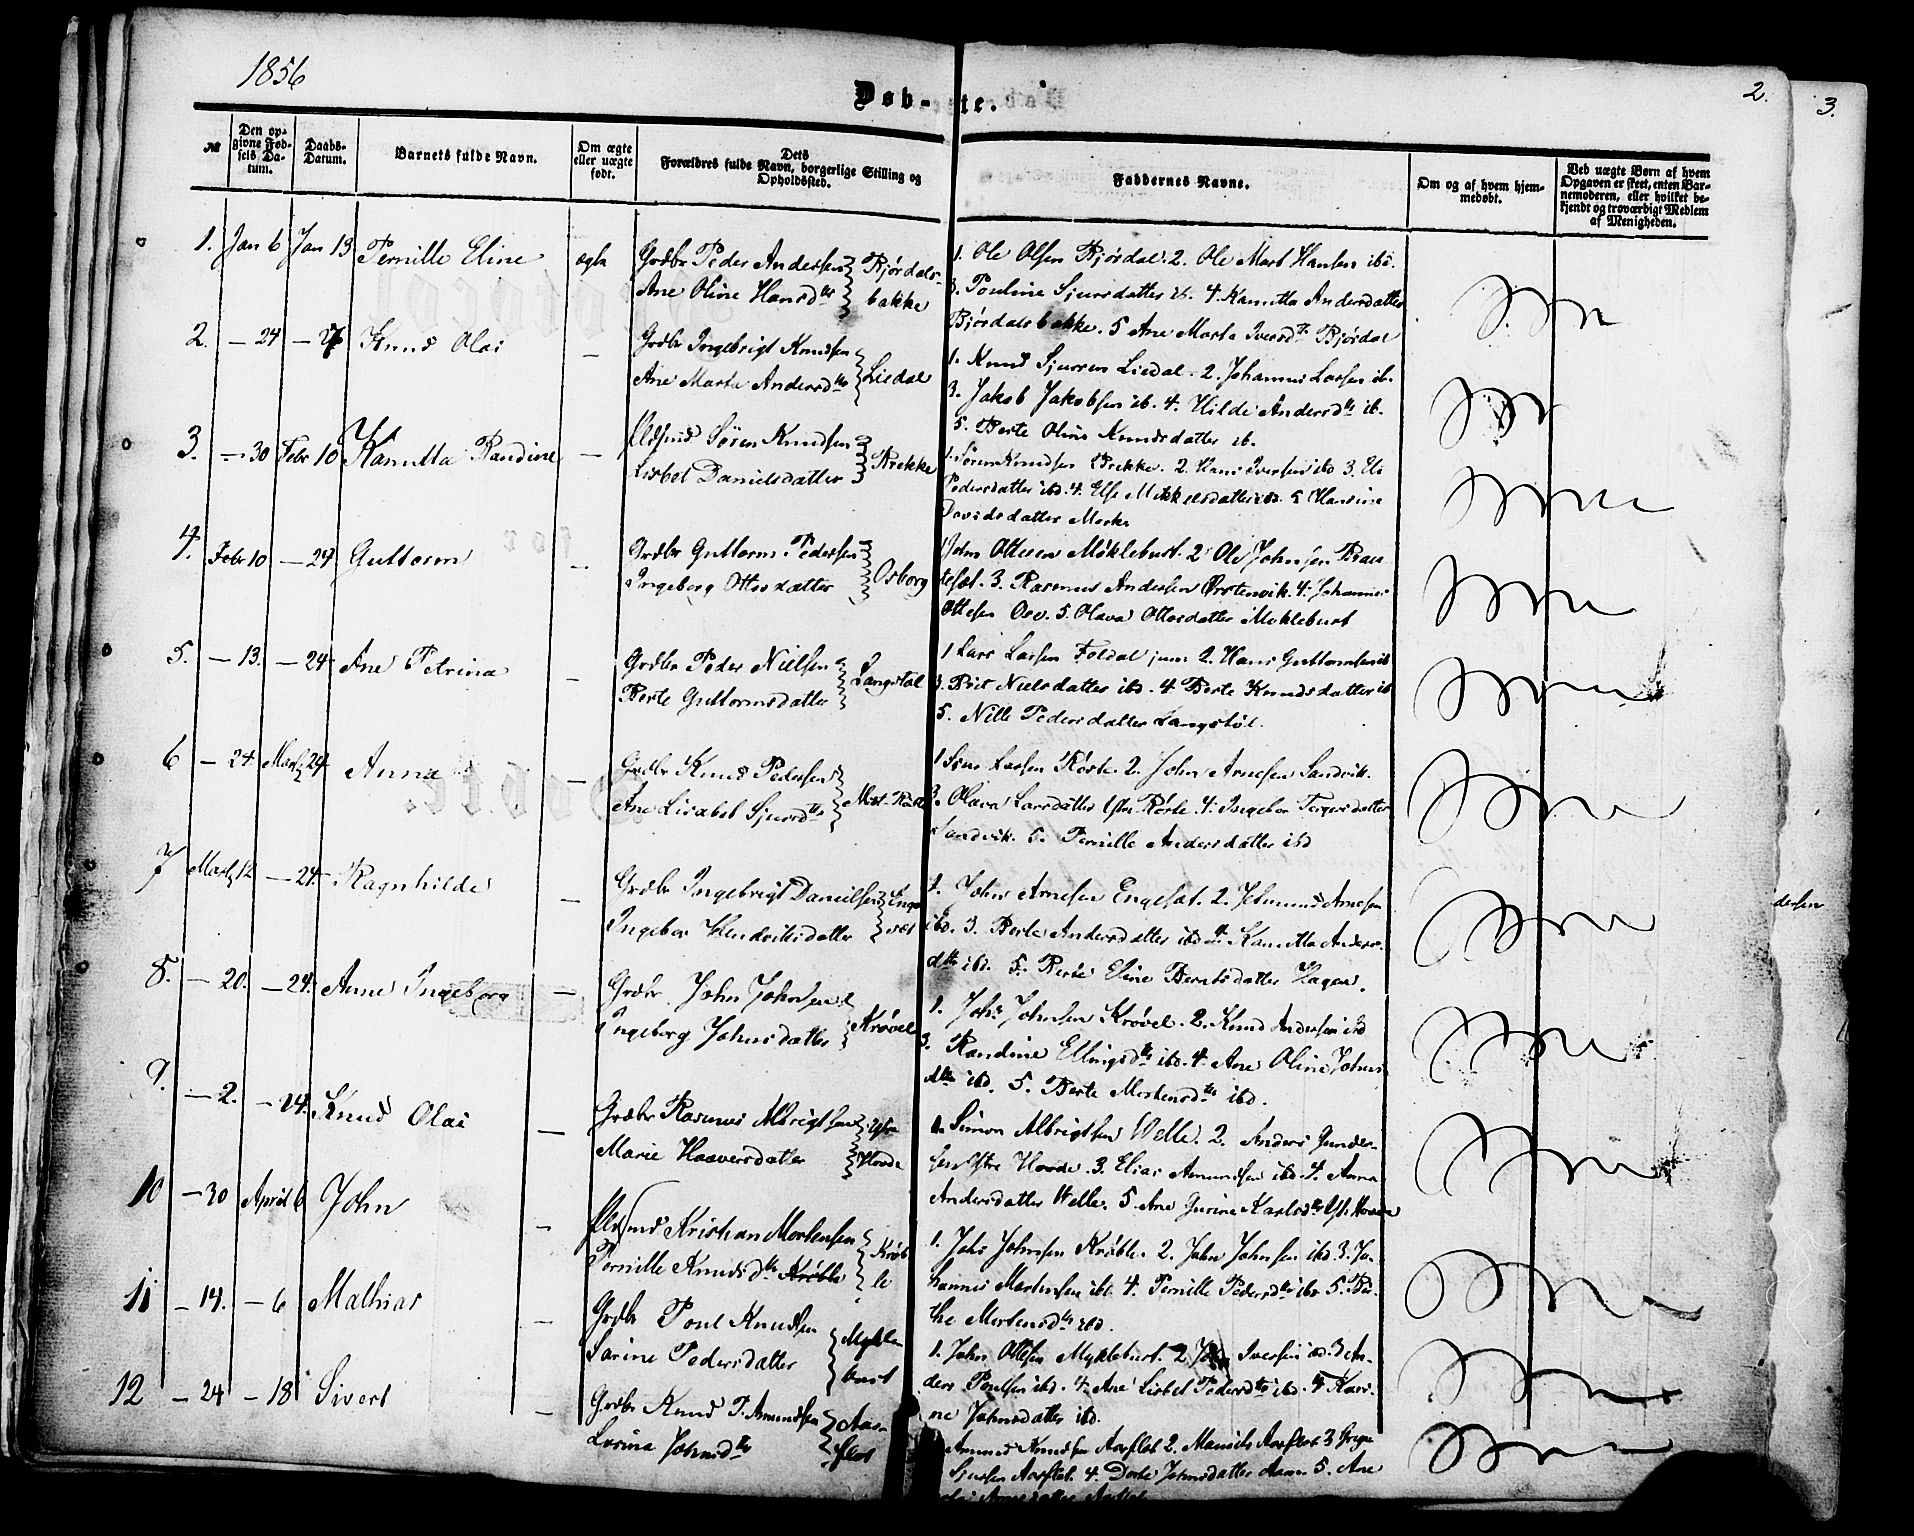 1856
2.
3.
Døb-te.
№
Den op-
givne Fød-
sels Da-
tum.
Daabs-
Datum.
Barnets fulde Navn.
Om ægte
eller uægte
født.
Dets
Forældres fulde Navn, borgerlige Stilling og
Opholdssted.
Faddernes Navne.
Om og af hvem hjem-
medøbt.
Ved uægte Børn af hvem
Opgaven er skeet, enten Bar-
nemoderen, eller hvilket be-
kjendt og troværdigt Medlem
af Menigheden.
1. Jan 6 Jan 13 Pernille Eline ægte Grdbr Peder Andersen
Ane Oline Hansdtr
Bjørdals-
bakke
1. Ole Olsen Bjørdal. 2. Ole Mart Hansen ibd.
3. Pouline Sjursdatter ib. 4. Kanutta Andersdatter
Bjørdalsbakke. 5 Ane Marta Iversdtr Bjørdal
2. — 24 — 27 Knud Olai — Grdbr Ingebrigt Knudsen
Ane Marta Andersdtr
Liedal
1. Knud Sjursen Liedal. 2. Johannes Larsen ib.
3. Jakob Jakobsen ib. 4. Hilde Andersdtr ib.
5. Berte Oline Knudsdatter ib.
3. — 30 Febr 10 Kanutta Randine — Søren Knudsen
Lisbet Danielsdatter
Brekke
1. Søren Knudsen Brekke. 2. Hans Iversen ibd 3. Eli
Pedersdatter ibd. 4. Else Mikkelsdatter ibd. 5 Hansine
Davidsdatter Mork
4. Febr 10 — 24 Guttorm — Grdbr Guttorm Pedersen
Ingeborg Ottosdatter
Osborg
1 John Ottesen Møklebust. 2 Ole Johnsen
3. Rasmus Andersen Ørstenvik. 4. Johannes
Ottesen Osv. 5. Olava Ottosdatter Moklebust
5. — 13. — 24 Ane Petrina — Grdbr Peder Nielsen
Berte Guttormsdatter
Langstøl
1 Lars Larsen Foldal jun: 2. Hans Guttormsen ib
3. Brit Nielsdatter ibd. 4 Berte Knudsdatter ib
5. Nille Pedersdatter Langstøl.
6 — 24 Marts 24 Anna — Grdbr Knud Pedersen
Ane Lisabet Sjursdtr
1 Larsen Røste. 2. John Arnesen Sandvik.
3. Olava Larsdatter Ytre Røste. 4. Ingebor datter
Sandvik. 5. Pernille Andersdatter ibd
7 Marts 12 — 24. Ragnhilde — Grdbr Ingebrigt Danielsen
Ingebor Hendriksdatter
1. John Arnesen Engeset. 2. Arnesen
ibd. 3. Berte Andersdatter ibd 4. Kanutta Anders-
dtr ibd. 5. Berte Eline Berntsdatter Hagen.
8. — 20. — 24. Anne Ingeborg — Grdbr John Johnsen
Ingeborg Johnsdatter
Krøvel
1. Johs Johnsen Krøvel. 2. Knud Andersen ibd
3. Randine Ellingsdtr ibd. 4. Ane Oline Johns-
dtr ibd. 5. Berte Mortensdtr ibd.
9. — 2. — 24. Knud Olai — Grdbr Rasmus Albrigtsen
Marie Haaversdatter
Ytre
Hovde
1. Simon Albrigtsen Welle. 2. Anders Gunder-
sen Ytre Hovde. 3. Elias Amundsen ibd. 4. Anna
Andersdatter Welle. 5. Ane Gurine Karlsdtr Yt. Hovde
10 — 30 April 6 John — Kristian Mortensen
Pernille Knudsdtr
Krøb
le
1. Johs Johnsen Krøble. 2. John Johnsen ibd 3. Jo-
hannes Mortensen ibd. 4. Pernille Pedersdtr ibd 5. Be-
the Mortensdtr ibd.
11 — 14. — 6 Mathias — Grdbr Poul Knudsen
Sørine Pedersdatter
Mykle
bust
1. John Ottesen Myklebust. 2 Iversen ibd. 3 An-
ders Poulsen ibd. 4. Ane Lisbet Pedersdtr ibd.
ne Johnsdatter ibd.
12 — 24 — 18 Sivert — Grdbr Knud P. Amundsen
Lovina Johnsdtr
Aar-
flot
Amund Knudsen Aarflot 2. Aarflot 3
Sjursen Aarflot. 4. Dorte Johnsdatter Aam. 5. Ane
dersen